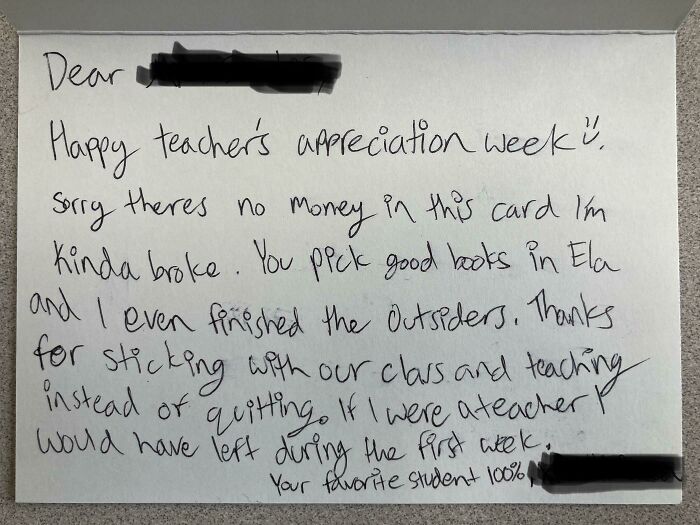 Dear
Happy teacher's appreciation week :).
sorry theres no money in this card I'm
kinda broke. You pick good books in Ela
and I even finished the Outsiders. Thanks
for sticking with our class and teaching
instead of quitting. If I were a teacher I
would have left during the first week.
Your favorite student 100%,